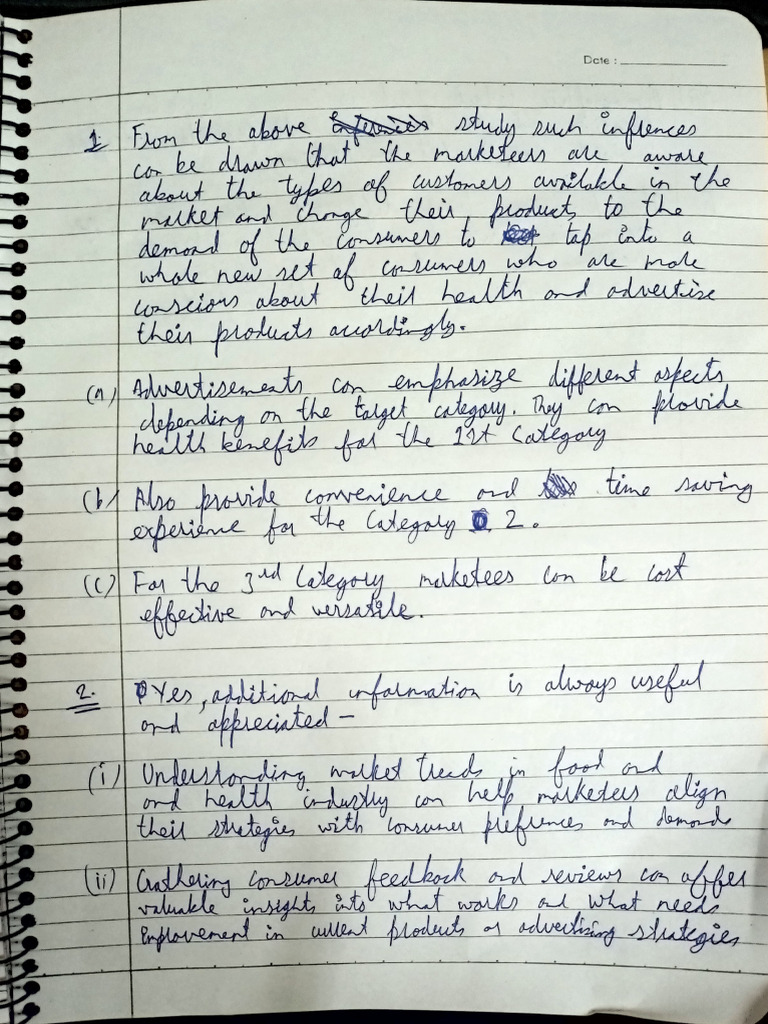 Date :
1. From the above study such infrences
can be drawn that the marketeers are aware
about the types of customers available in the
market and change their products to the
demand of the consumers to tap into a
whole new set of consumers who are more
conscious about their health and advertise
their products accordingly.
(a) Advertisements can emphasize different aspects
depending on the target category. They can provide
health benefits for the 1st Category
(b) Also provide convenience and time saving
experience for the Category 2.
(c) For the 3rd Category marketees can be cost
effective and versatile.
2. Yes, additional information is always useful
and appreciated -
(i) Understanding market trends in food and
and health industry can help marketers align
their strategies with consumer prefrences and demands
(ii) Gathering consumer feedback and reviews can offer
valuable insights into what works and what needs
Improvement in current products or advertising strategies